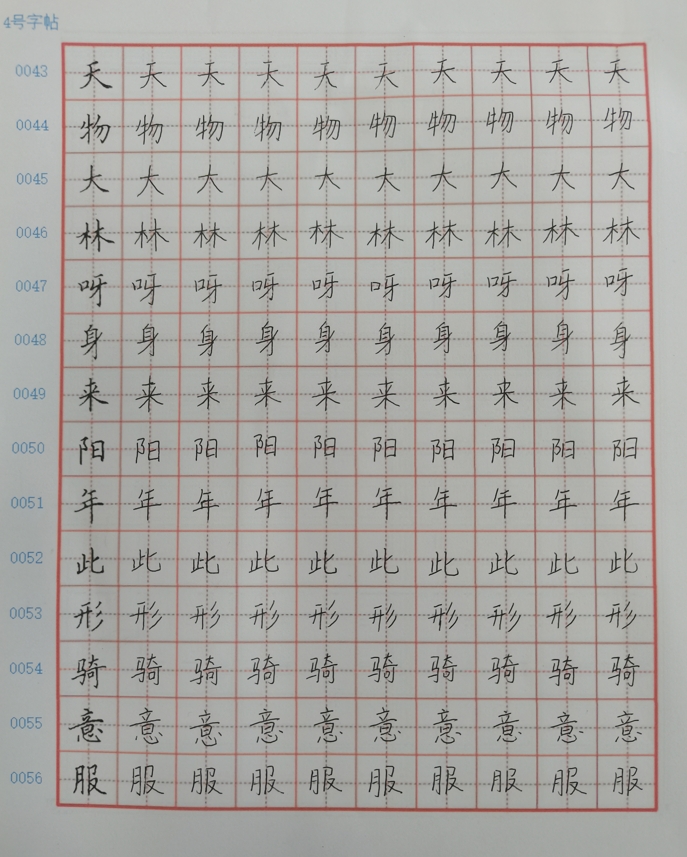 4号字帖
0043 天 天 天 天 天 天 天 天 天 天
0044 物 物 物 物 物 物 物 物 物 物
0045 大 大 大 大 大 大 大 大 大 大
0046 林 林 林 林 林 林 林 林 林 林
0047 呀 呀 呀 呀 呀 呀 呀 呀 呀 呀
0048 身 身 身 身 身 身 身 身 身 身
0049 来 来 来 来 来 来 来 来 来 来
0050 阳 阳 阳 阳 阳 阳 阳 阳 阳 阳
0051 年 年 年 年 年 年 年 年 年 年
0052 此 此 此 此 此 此 此 此 此 此
0053 形 形 形 形 形 形 形 形 形 形
0054 骑 骑 骑 骑 骑 骑 骑 骑 骑 骑
0055 意 意 意 意 意 意 意 意 意 意
0056 服 服 服 服 服 服 服 服 服 服